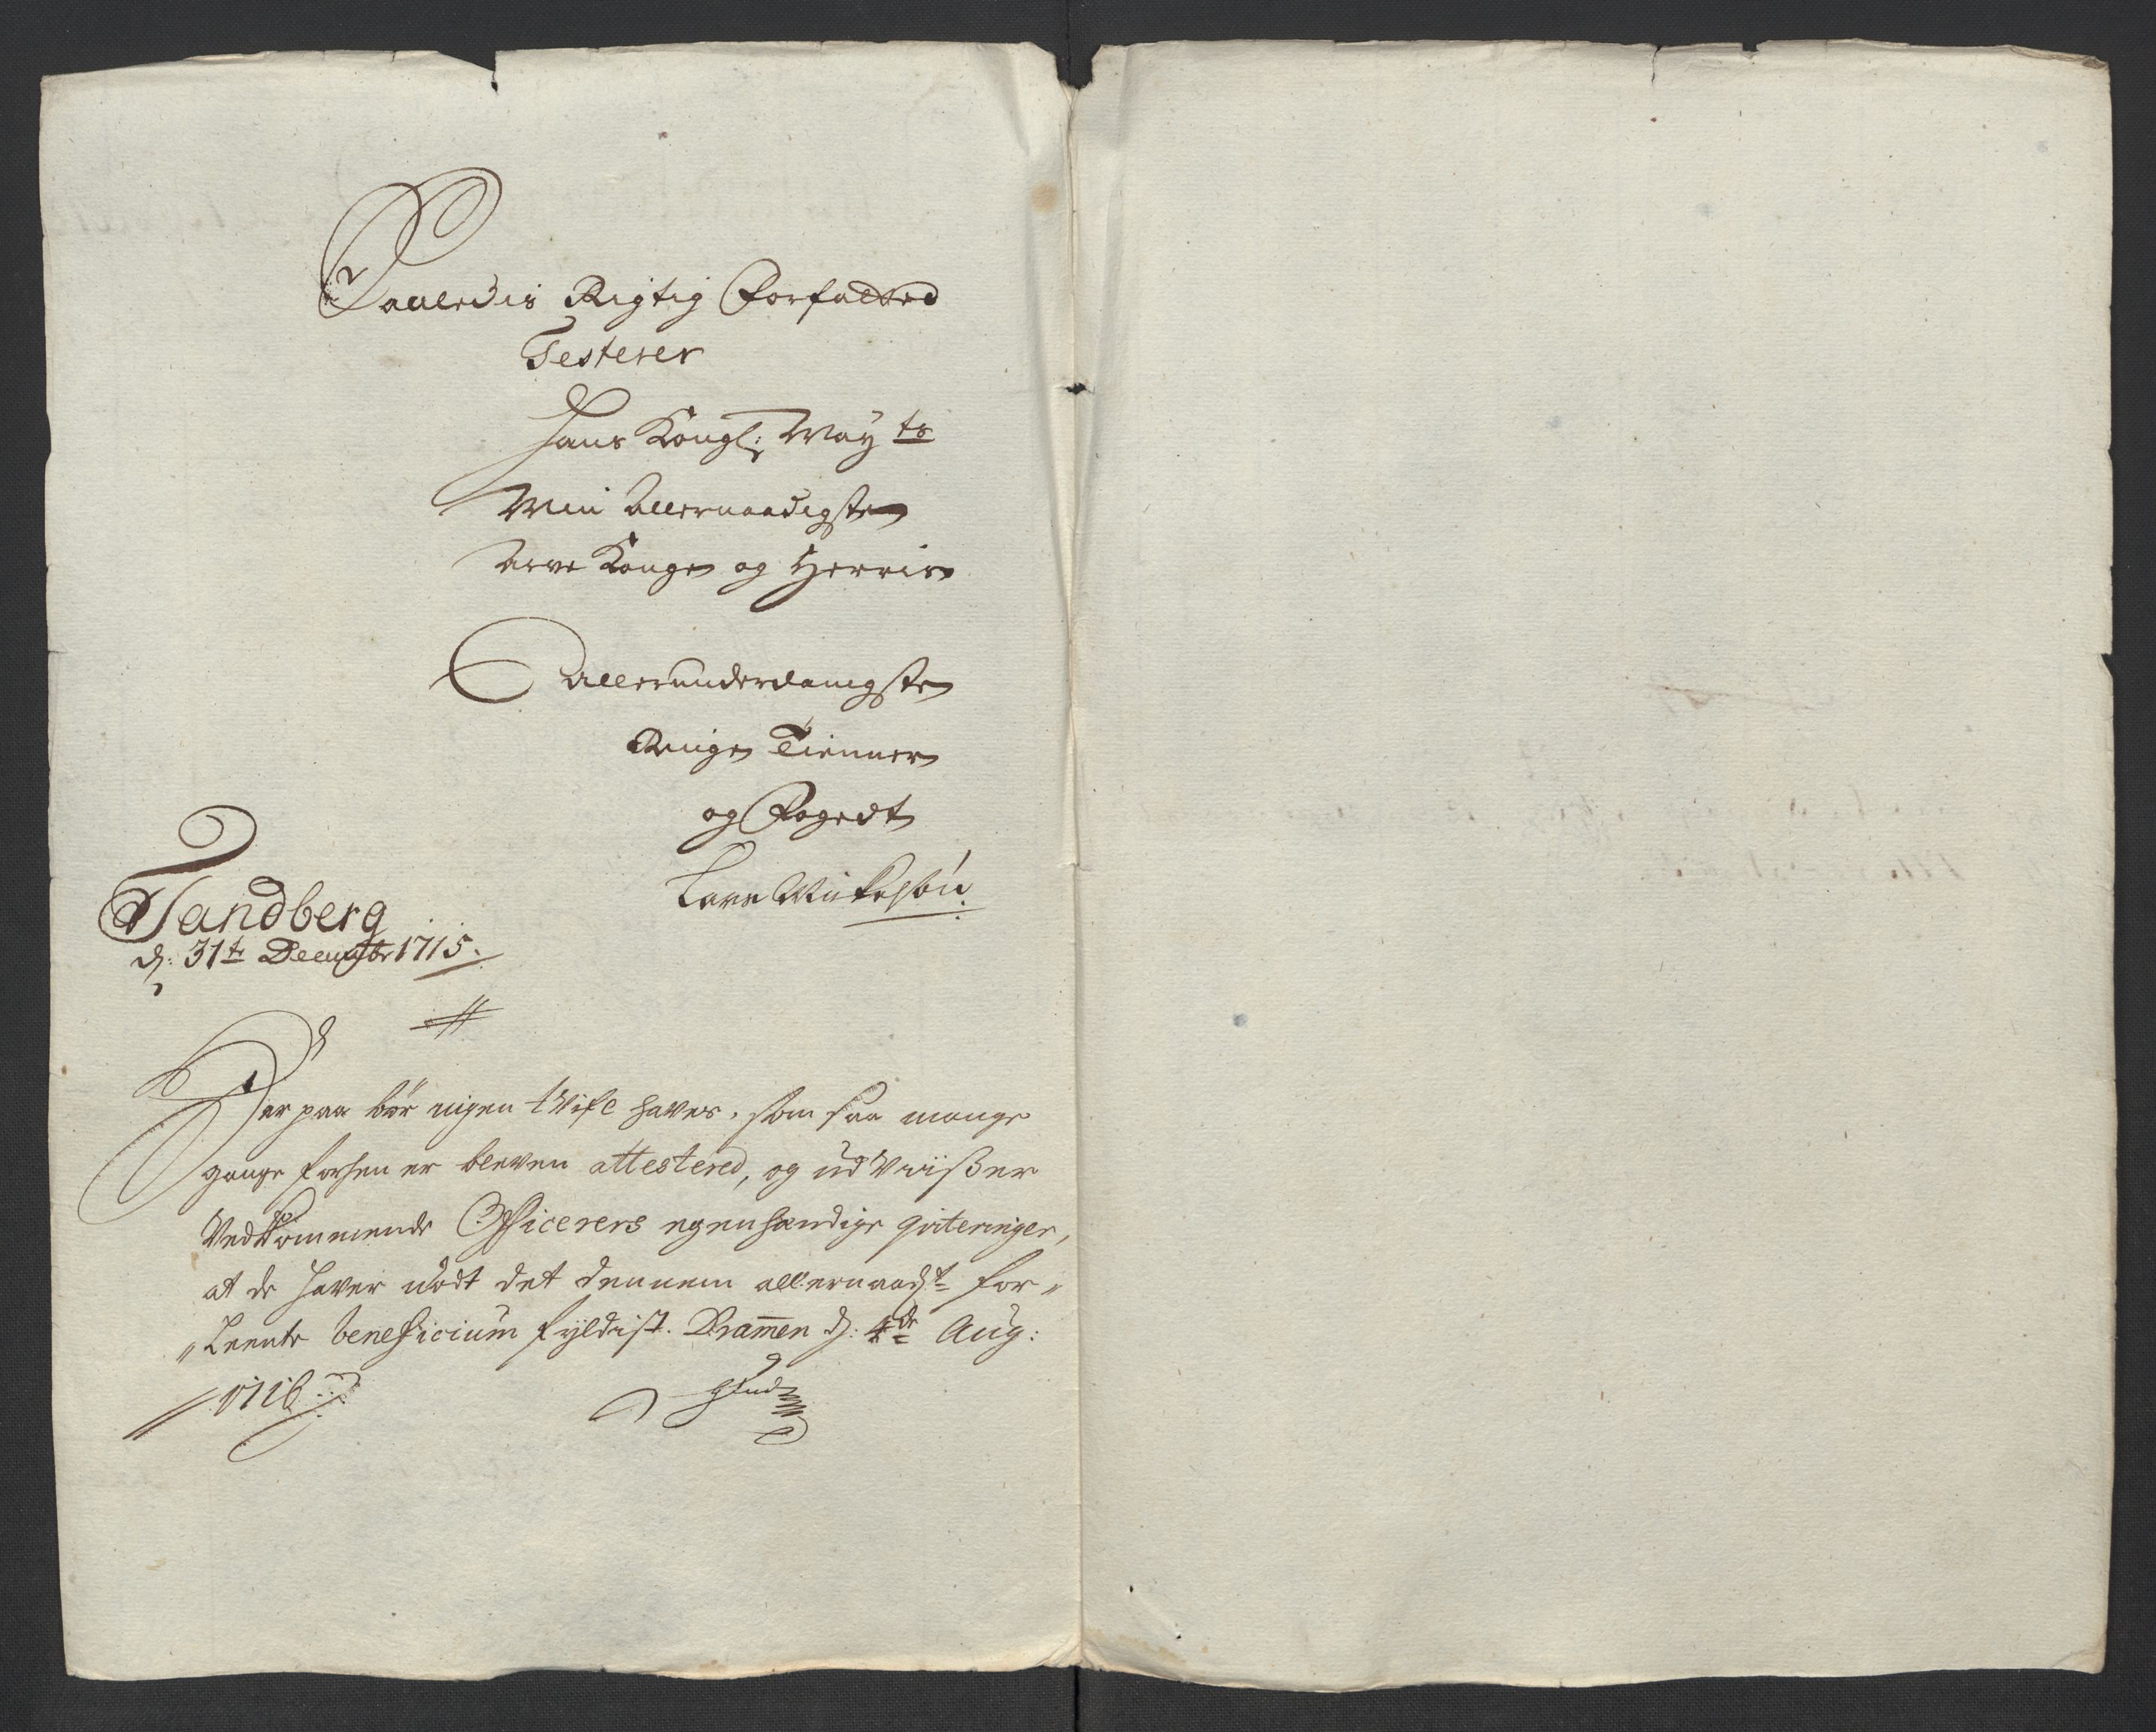 Saaledis Rigtig Forfatted
Testerer
Hans Kongl: May ts
Min Allernaadigste
Arve Konge og Herris
Allerunderdanigste
Ringe Tienner
og Fogedt
Tandberg
d: 31te Decembr 1715.
Her paa bør ingen tvifl haves, som saa mange
gange forhen er bleven attestered, og udviißer
Vedkommende Officerers egenhændige qviteringer,
at de haver nødt det dennem allernaadst for„
„Leente beneficium fyldist. Drammen d: 4de Aug:
1716